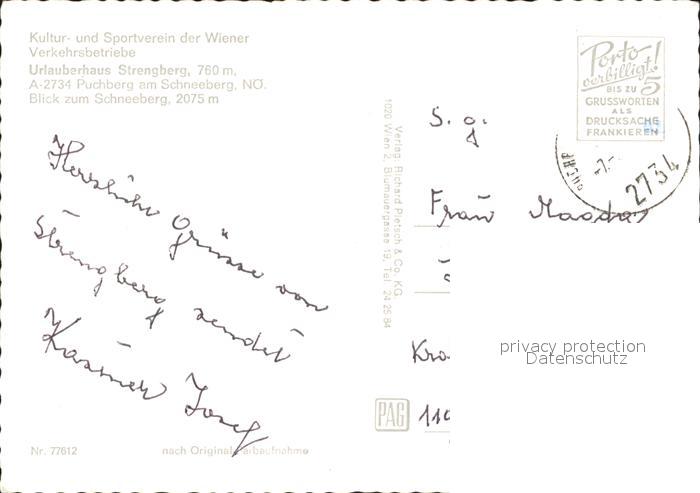 Kultur- und Sportverein der Wiener
Verkehrsbetriebe
Urlauberhaus Strengberg, 760 m,
A-2734 Puchberg am Schneeberg, NÖ.
Blick zum Schneeberg, 2075 m
Herzliche Grüsse von
Strengberg sendet
Josef
Nr. 77612
nach Original-Farbaufnahme
Verlag: Richard Pietsch & Co. KG.
1020 Wien 2, Blumauergasse 19, Tel. 24 25 84
PAG
Porto
verbilligt!
BIS ZU 5
GRUSSWORTEN
ALS
DRUCKSACHE
FRANKIEREN
2734
S. g.
Frau
privacy protection
Datenschutz